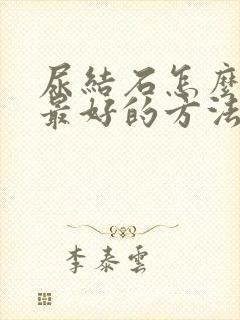 尿結石怎麼
最好的方法
李泰雲